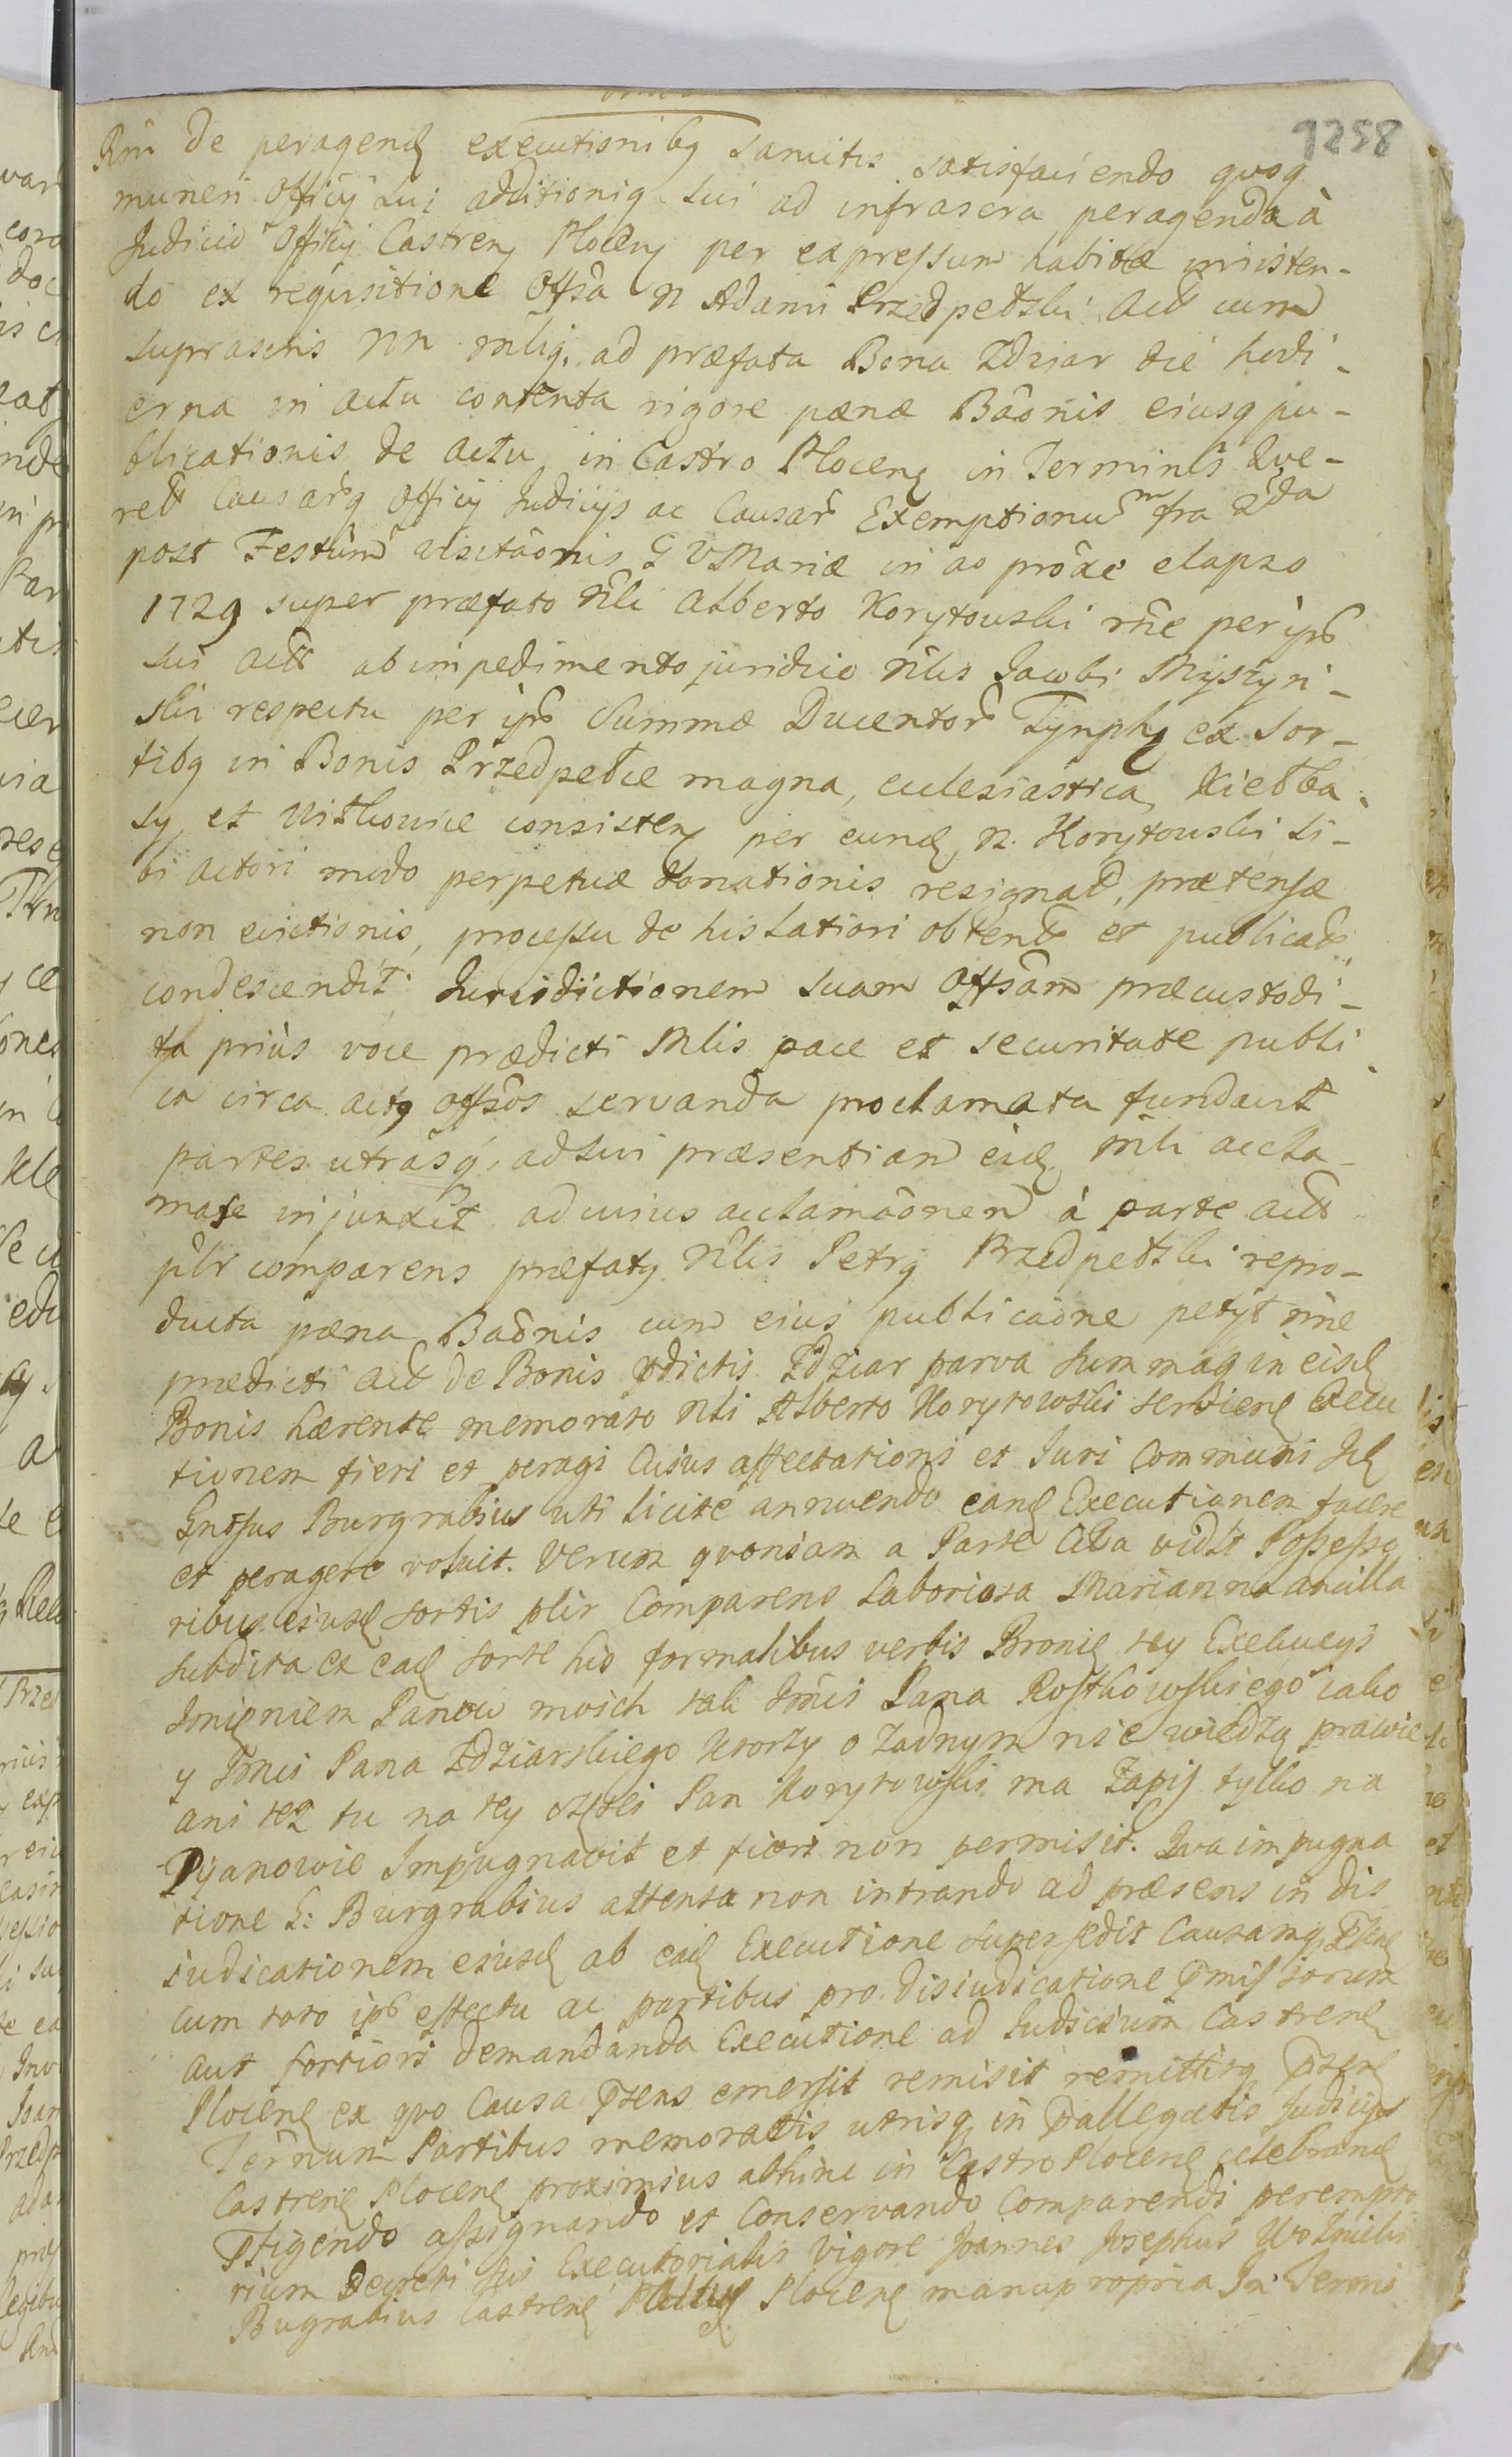 1258
Rni de peragend executionibq sancitis satisfaciendo quoq
muneri Officÿ sui additioniq sui ad infrascra peragenda à
Judicio Officÿ Castren Plocen per expressum habitæ insisten-
do ex requisitione Offsa N Adami Przedpełski Act cum
suprascris NN mlig. ad præfata Bona Zdziar die hodi-
erna in actu contenta rigore pænæ Bãonis eiusq pu-
blicationis de actu in Castro Plocen in Terminis Que-
rel Causarq Officÿ Judicijs ac Causar Exemptionũ fra 2da
post Festum visitãonis G V Mariæ in ao proxe elapso
1729 super præfato Nli Alberto Korytowski rñe per ips
sui Act ab impedimento juridico Nlis Jacobi Myszyn-
ski respectu per ips Summæ Ducentor Tynph ex Sor-
tibq in Bonis Przedpełce magna, eclesiastica, Kiełba-
sy et Witkowice consisten per eund N. Korytowski si-
bi actori modo perpetuæ donationis resignat, prætensæ
non evictionis, processu de his latiori obtento et publicato
condescendit; Jurisdictionem suam Offsam præcustodi-
ta priùs voce prædicti Mlis pace et securitate publi-
ca circa actq offsos servanda proclamata fundavit
partes utrasq, ad sui præsentiam eid mli accla-
mare injunxit ad cuius acclamãonem à parte act
plr comparens præfatq Nlis Petrq Przedpełski repro-
ducta pæna Bãonis cum eius publicãone petijt rñe
prædicti act de Bonis pdictis Zdziar parva Summaq in eisd
Bonis hærente memorato Nli Alberto Korytowski servien Execu
tionem fieri et peragi Cuius affectationi et Juri Communi Id
Gnosus Burgrabius uti licite annuendo eand Executionem facere
et peragere voluit. Verum quoniam a Parte Alia vidlt Possesso
ribus eiusd sortis plir Comparens Laboriosa Marianna ancilla
subdita ex ead sorte his formalibus verbis Bronię tey Exekucyi
Jmięniem Panow moich tak Jmci Pana Rostkowskiego iako
y Jmci Pana Zdziarskiego Ktorzy o żadnym nie wiedzą prawie
ani też tu na tey części Pan Korytowski ma Zapis tylko na
Pijanowie Impugnavit et fieri non permisit. Qva impugna
tione G: Burgrabius attenta non intrando ad præsens in dis
iudicationem eiusd ab ead Executione supersedit Causamq Psen
cum toto ips effectu ac partibus pro disiudicatione Pmissorum
aut fortiori demandanda Executione ad Judicium Castren
Plocen ex quo Causa Psens emersit remisit remittitq Psen
Terñum Partibus memoratis utrisq in Pallegatis Judicijs
Castren Plocen proximius abhinc in Castro Plocen celebrand
Pfigendo assignando et Conservando Comparendi perempto
rium Decreti sui Executorialis Vigore Joannes Josephus Woźnicki
Bugrabius Castren Plocen manu propria In Termi